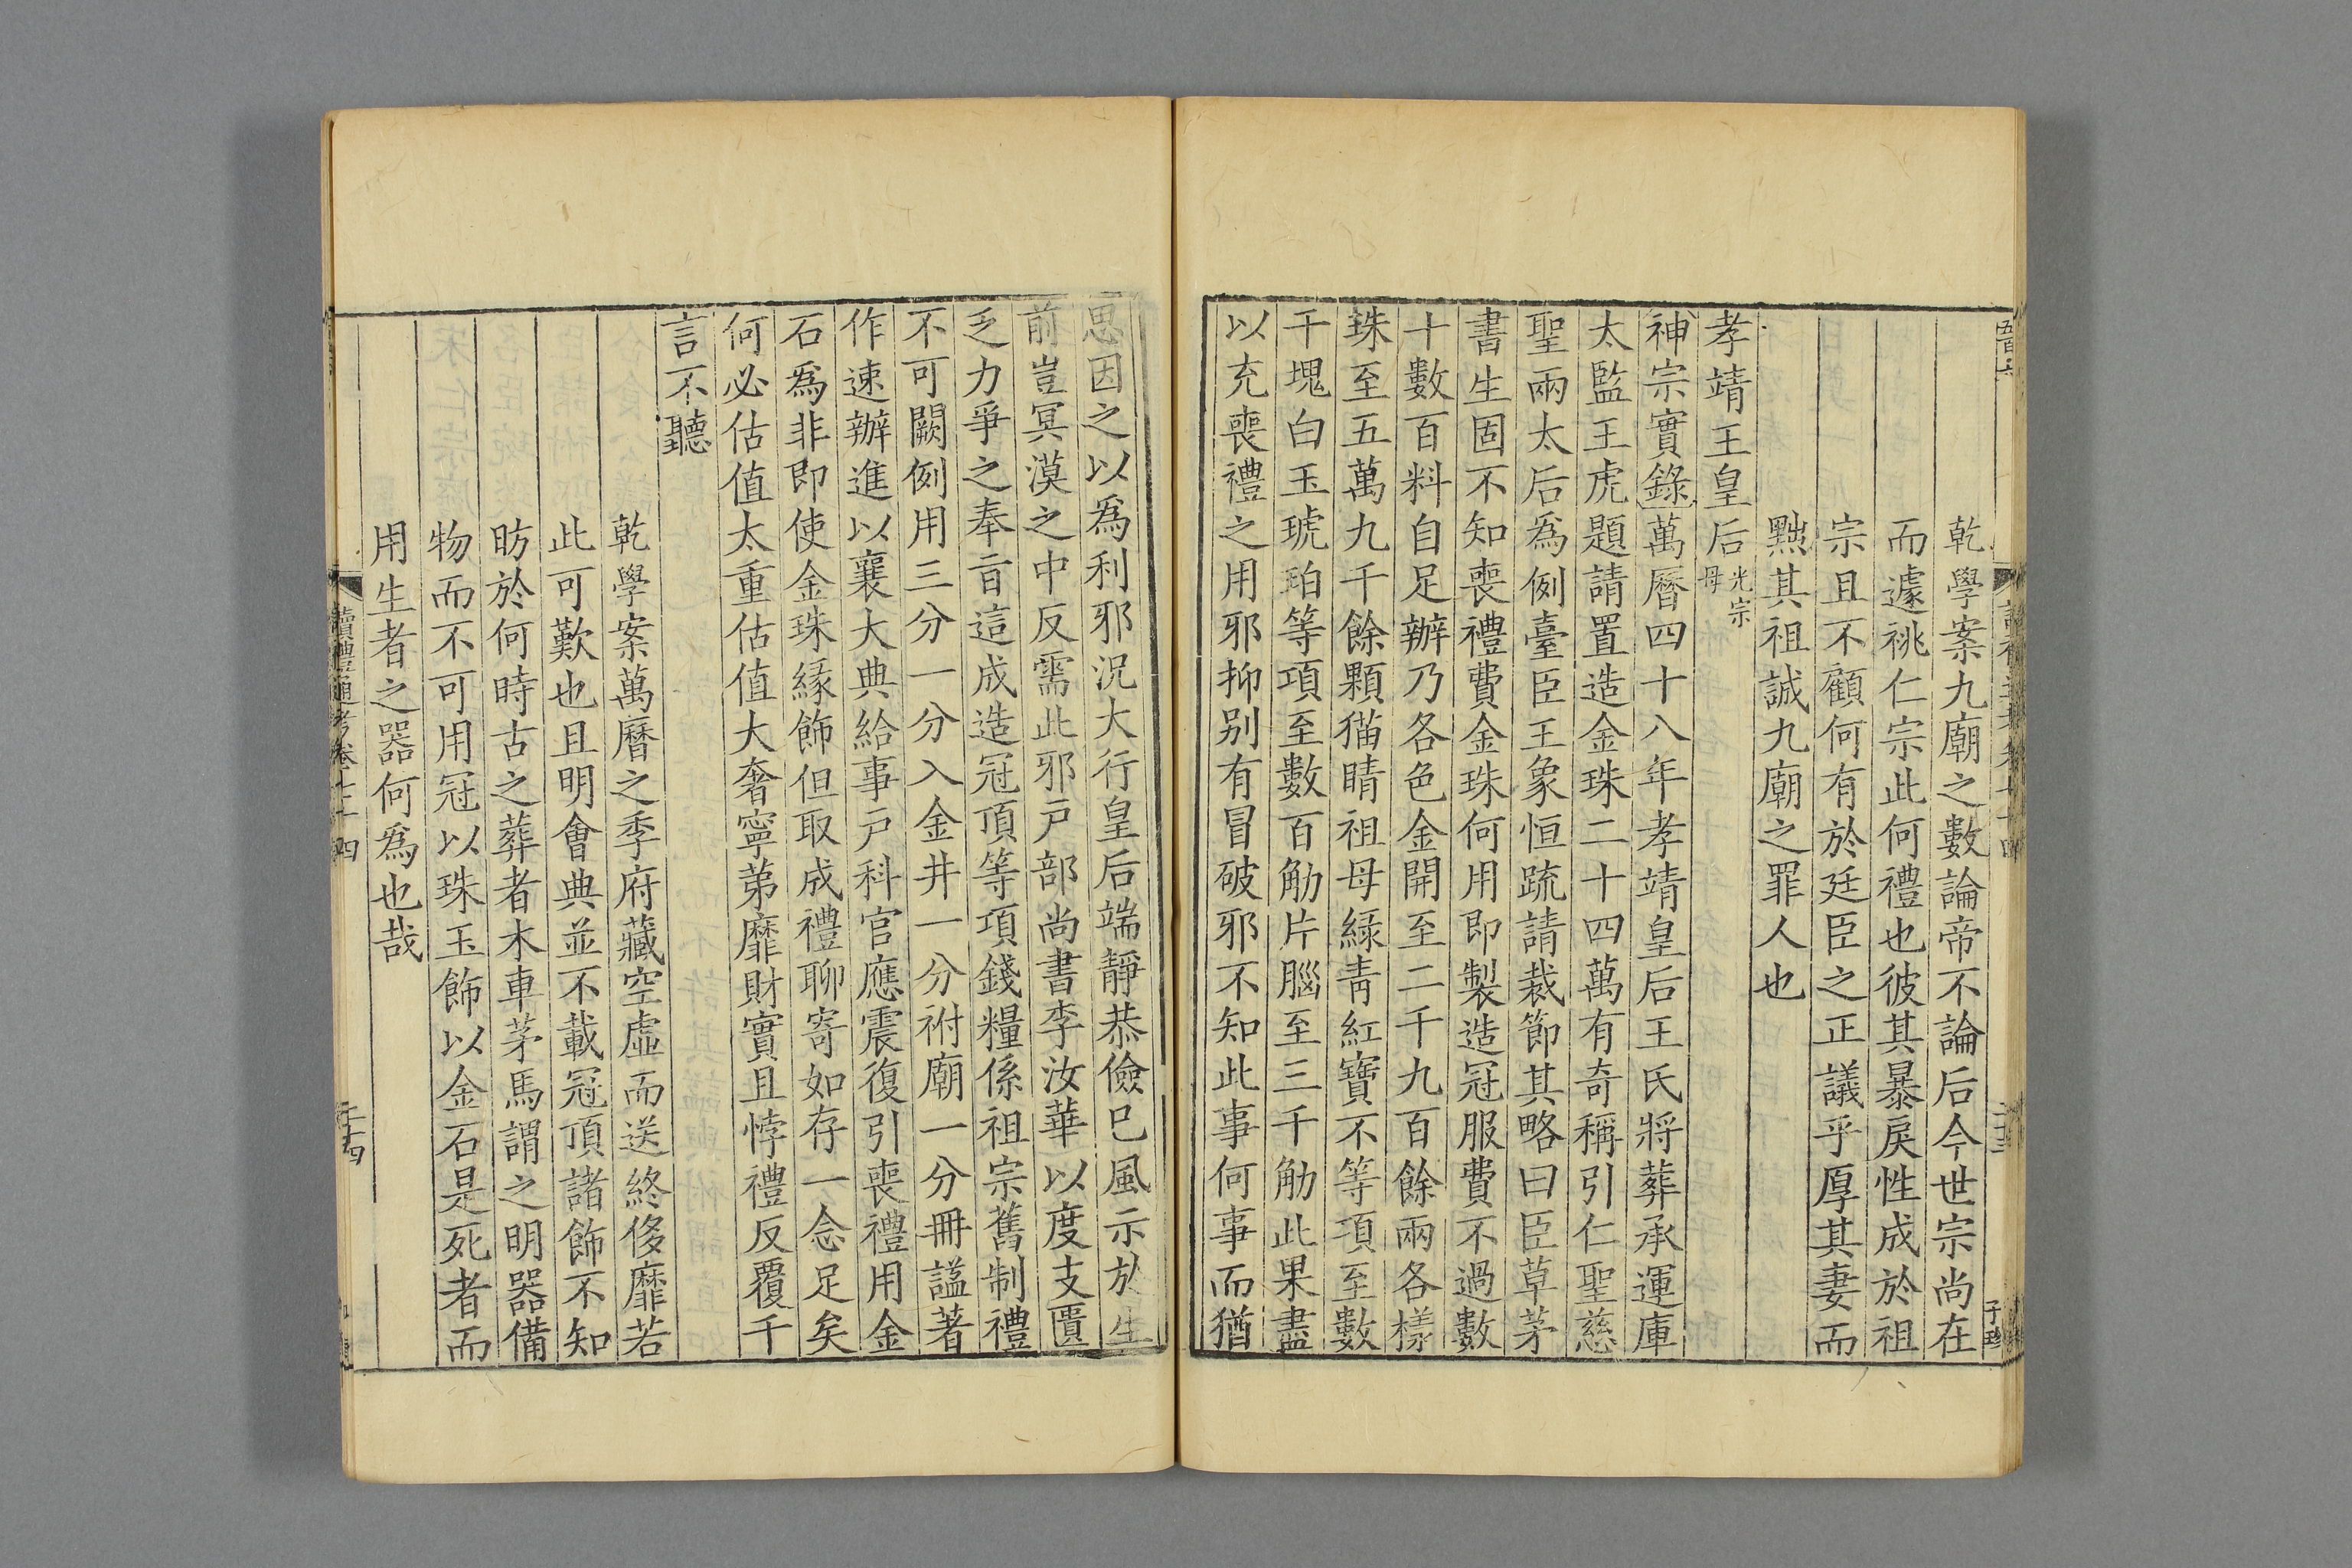 乾學案九廟之數論帝不論后今世宗尚在
而遽祧仁宗此何禮也彼其暴戾性成於祖
宗且不顧何有於廷臣之正議乎厚其妻而
黜其祖誠九廟之罪人也
孝靖王皇后光宗母
神宗實錄萬曆四十八年孝靖皇后王氏將葬承運庫
太監王虎題請置造金珠二十四萬有奇稱引仁聖慈
聖兩太后爲例臺臣王象恒疏請裁節其略曰臣草茅
書生固不知喪禮費金珠何用即製造冠服費不過數
十數百料自足辦乃各色金開至二千九百餘兩各樣
珠至五萬九千餘顆猫睛祖母緑青紅寶不等項至數
千塊白玉琥珀等項至數百觔片腦至三千觔此果盡
以充喪禮之用邪抑别有冒破邪不知此事何事而猶
思因之以爲利邪況大行皇后端靜恭儉已風示於生
前豈冥漠之中反需此邪户部尚書李汝華以度支匱
乏力爭之奉旨這成造冠頂等項錢糧係祖宗舊制禮
不可闕例用三分一分入金井一分祔廟一分冊諡著
作速辦進以襄大典給事戸科官應震復引喪禮用金
石爲非即使金珠緣飾但取成禮聊寄如存一念足矣
何必估值太重估值大奢寜第靡財實且悖禮反覆千
言不聽
乾學案萬曆之季府藏空虛而送終侈靡若
此可歎也且明會典並不載冠頂諸飾不知
昉於何時古之葬者木車茅馬謂之明器備
物而不可用冠以珠玉飾以金石是死者而
用生者之器何爲也哉
讀禮通考卷七十四
二十四